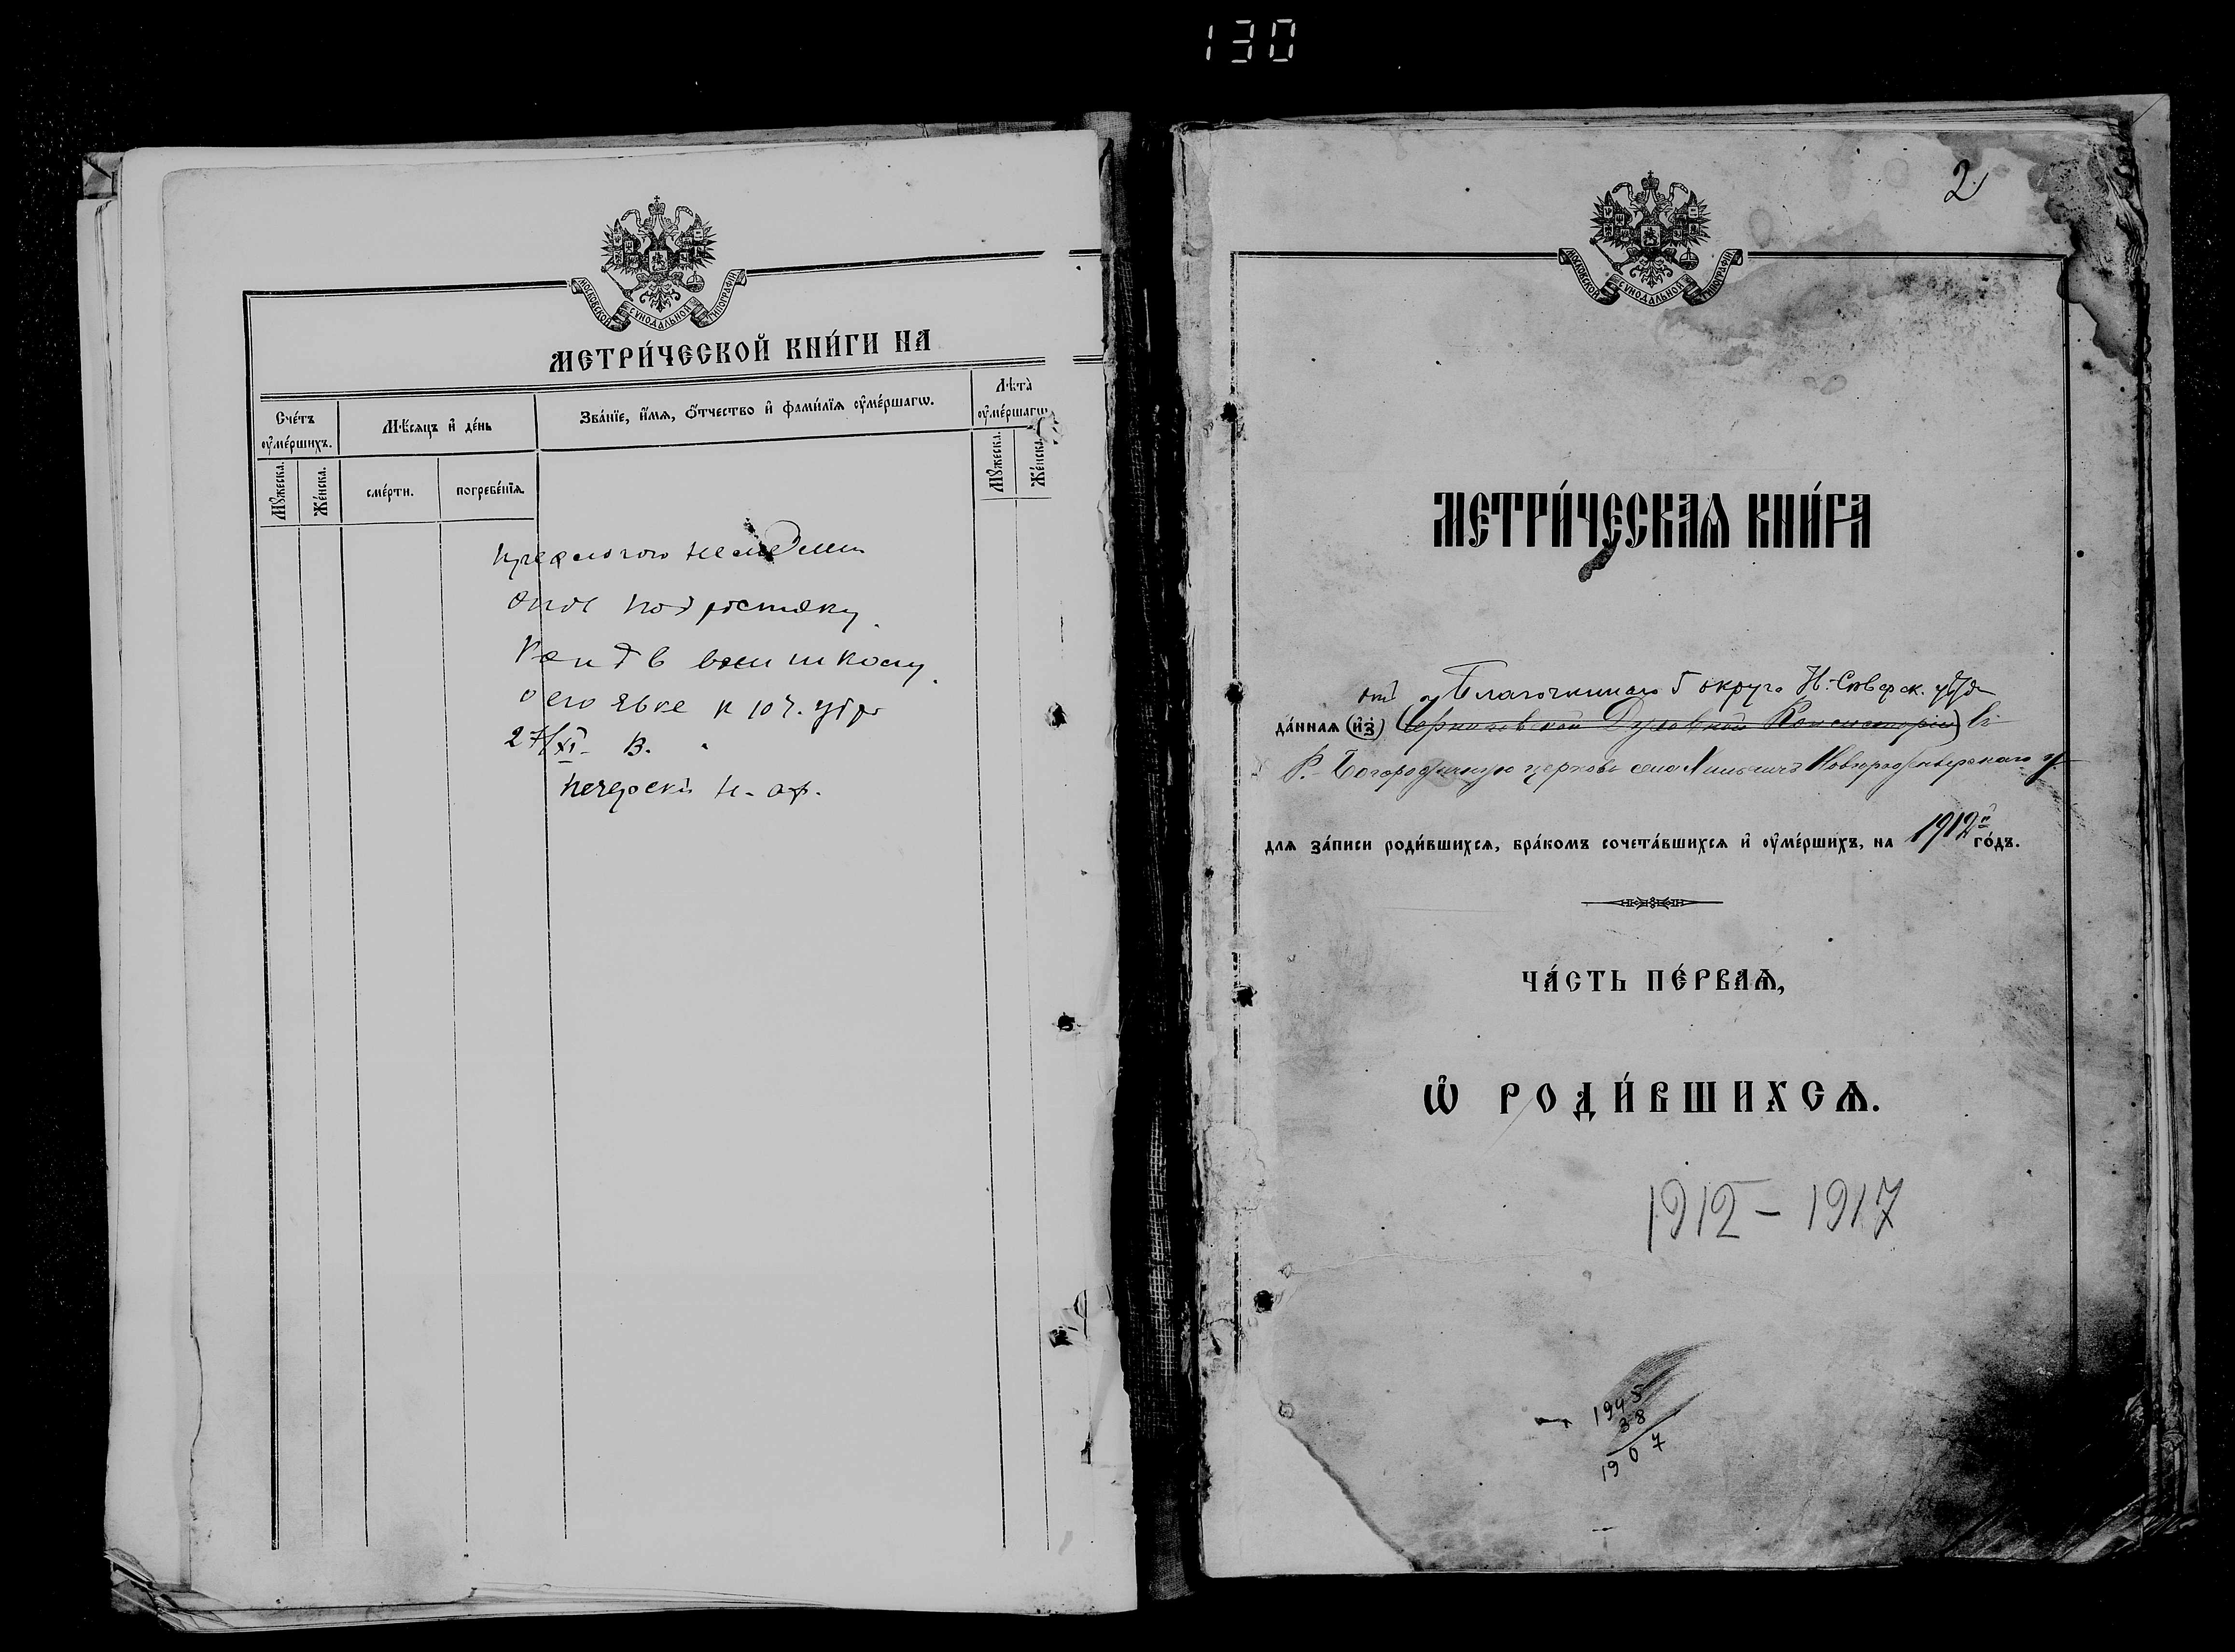 130
МОСКОВСКОЙ СѴНОДАЛЬНОЙ ТИПОГРАФІИ
МЕТРИ́ЧЕСКОЙ КНИ́ГИ НА
Сче́тъ ᲂу҆ме́ршихъ.
Мѣ́сяцъ и҆ де́нь
Зва́нїе, и҆́мѧ, ѻ҆́тчество и҆ фами́лїѧ ᲂу҆ме́ршагѡ.
Лѣта̀ ᲂу҆ме́ршагѡ
Мꙋ́жеска.
Же́нска.
сме́рти.
погребе́нїѧ.
Мꙋ́жеска.
Же́нска.
под росписку
о его явке к 10 ч. утра
27/XI- В.
Печерскій
2
МОСКОВСКОЙ СѴНОДАЛЬНОЙ ТИПОГРАФІИ
МЕТРИ́ЧЕСКАѦ КНИ́ГА
отъ Благочиннаго 5 округа Н.-Сѣверск. уѣзда
да́ннаѧ (и҆з̾) (Черниговской Духовной Консисторіи) въ
Р.-Богородичную церковь села Новгородсѣверскаго у.
длѧ за́писи роди́вшихсѧ, бра́комъ сочета́вшихсѧ и҆ ᲂу҆ме́ршихъ, на 1912й го́дъ.
ЧА́СТЬ ПЕ́РВАѦ,
Ѡ҆ РОДИ́ВШИХСѦ.
1912 - 1917
- 1945
38
1907